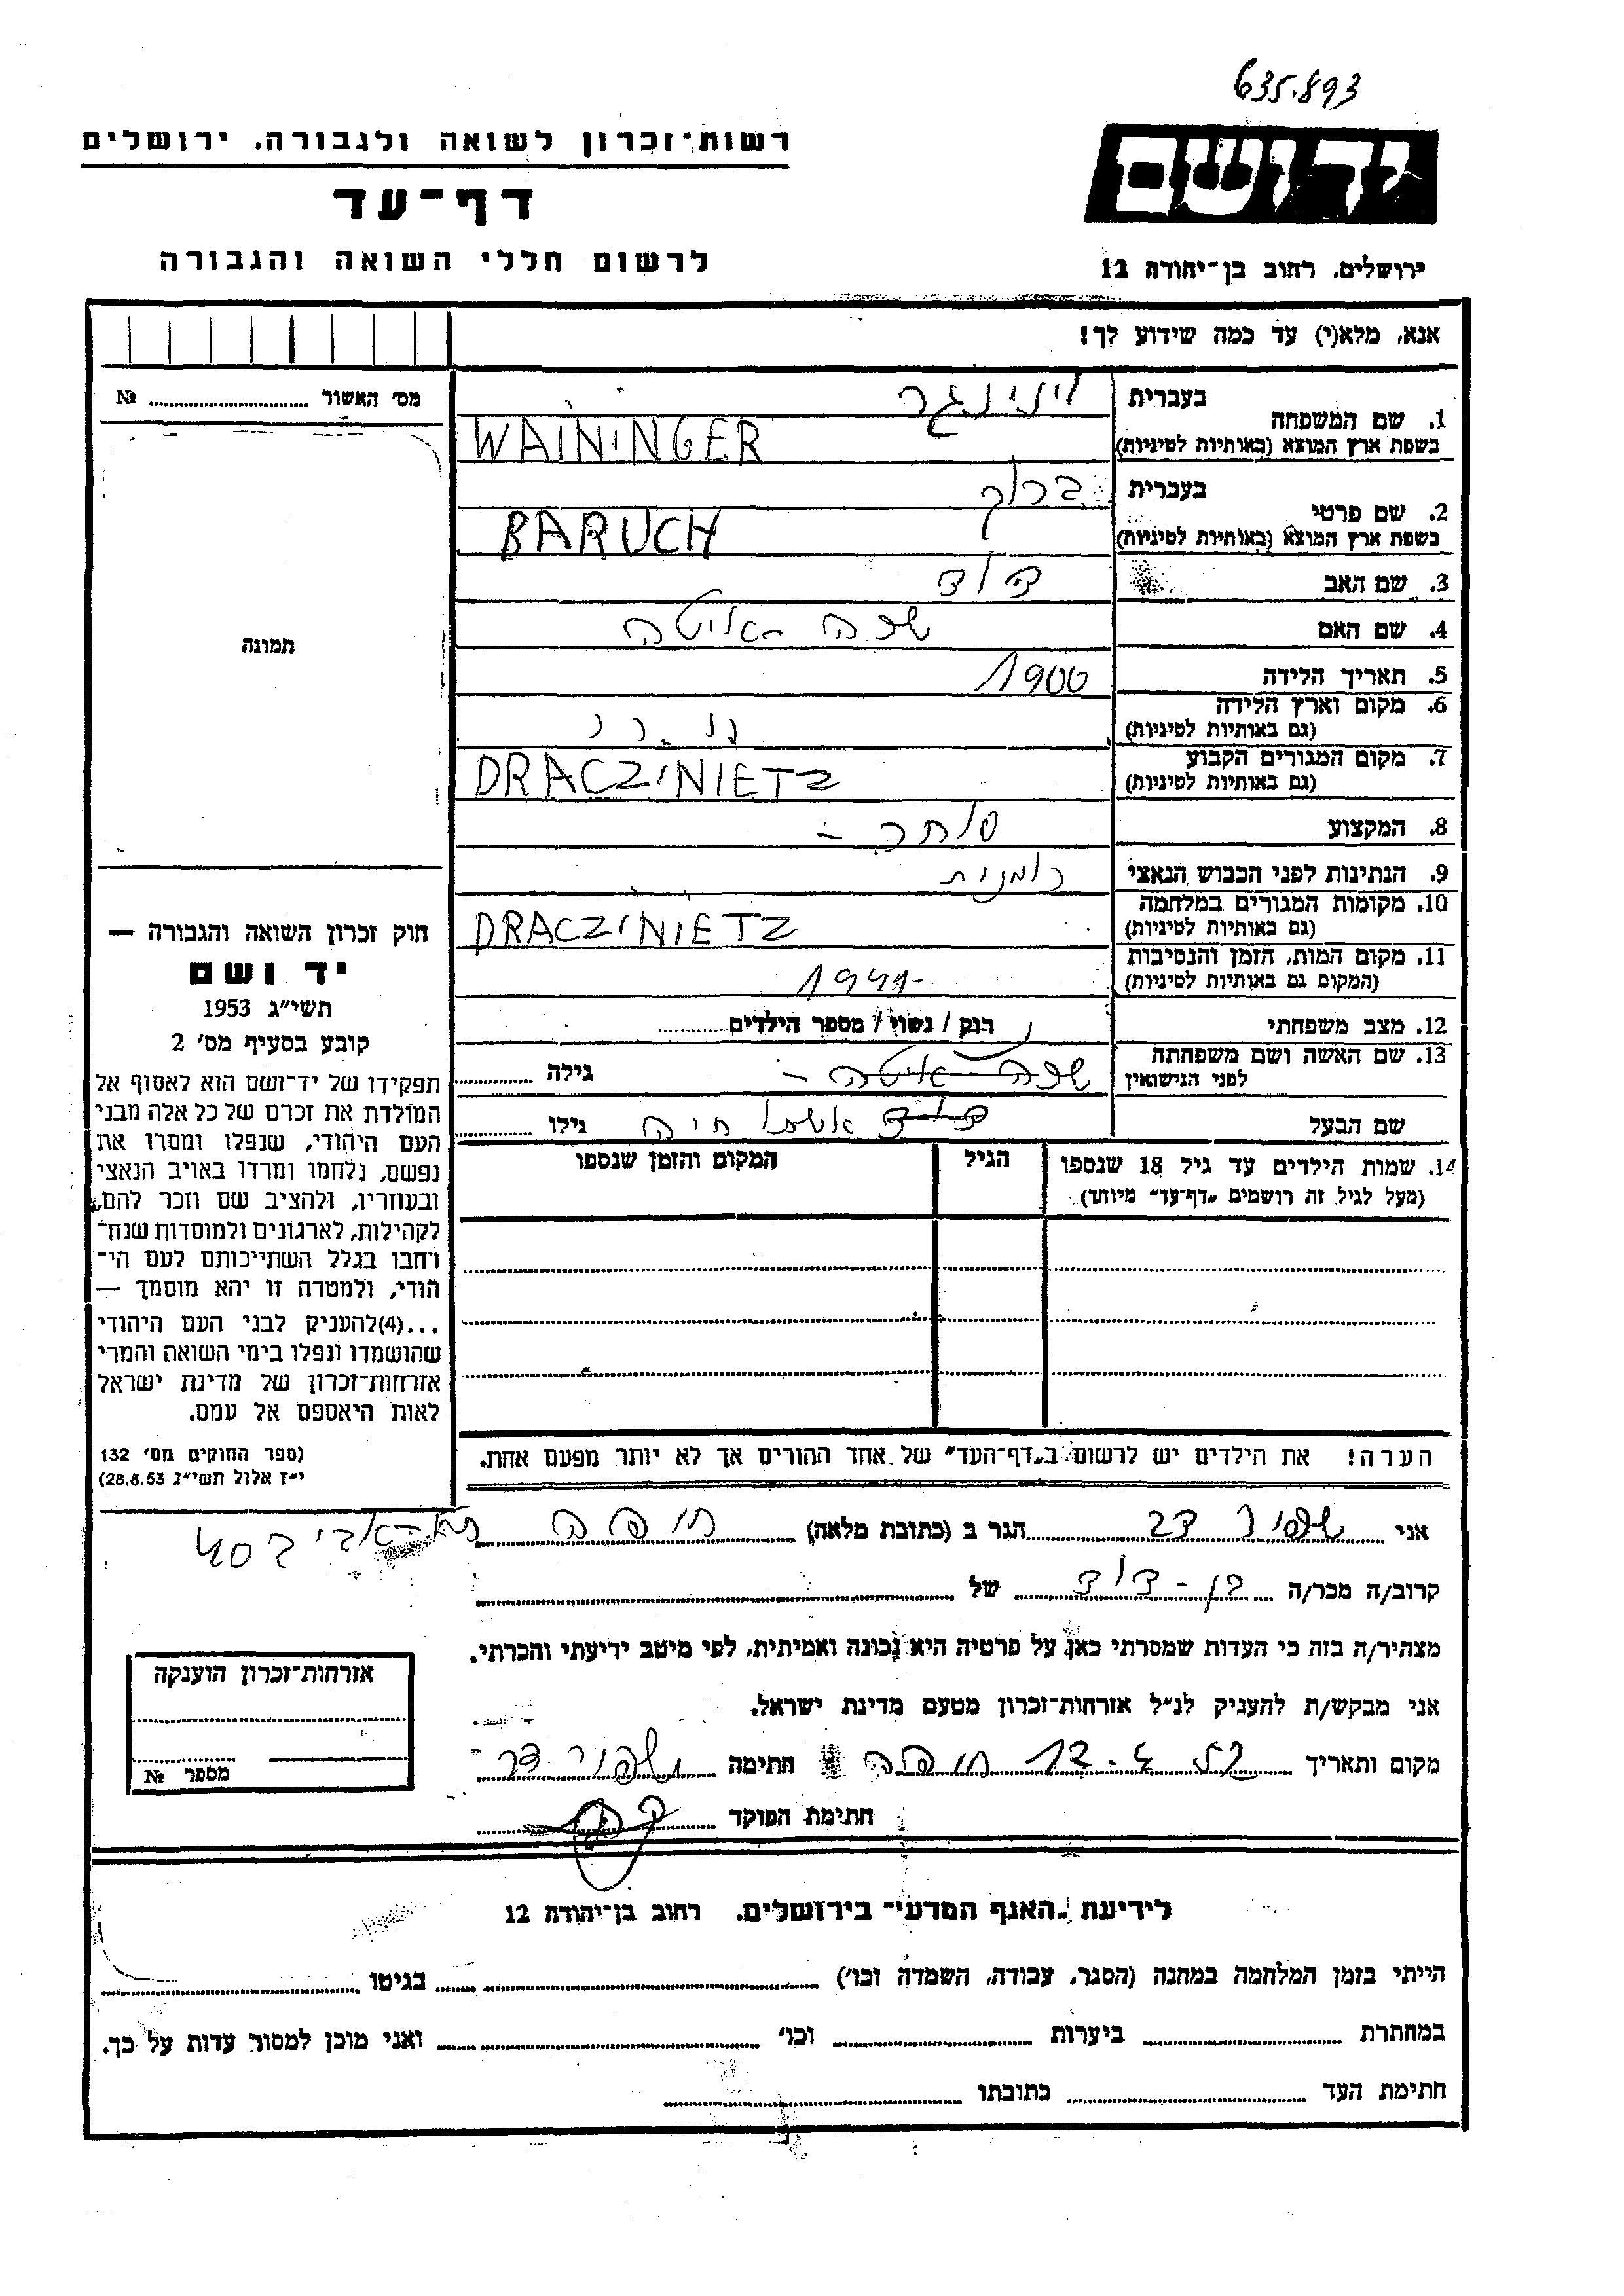 635.893
רשות-זכרון לשואה ולגבורה, ירושלים
דף-עד
לרשום חללי השואה והגבורה
יד ושם
ירושלים, רחוב בן-יהודה 12
אנא, מלא(י) עד כמה שידוע לך!
מס' האשור № 
תמונה
1. שם המשפחה בעברית ויינינגר
בשפת ארץ המוצא (באותיות לטיניות) WAININGER
2. שם פרטי בעברית ברוך
בשפת ארץ המוצא (באותיות לטיניות) BARUCH
3. שם האב דוד
4. שם האם שרה -איטה
5. תאריך הלידה 1900
6. מקום וארץ הלידה
(גם באותיות לטיניות)
7. מקום המגורים הקבוע DRACZINIETZ
(גם באותיות לטיניות)
8. המקצוע סוחר -
9. הנתינות לפני הכבוש הנאצי רומנית
10. מקומות המגורים במלחמה DRACZINIETZ
(גם באותיות לטיניות)
11. מקום המות, הזמן והנסיבות 1941-
(המקום גם באותיות לטיניות)
12. מצב משפחתי רנק / נשוי / מספר הילדים
13. שם האשה ושם משפחתה שרה איטה - גילה
לפני הנישואין
שם הבעל דוד חיה גילו
14. שמות הילדים עד גיל 18 שנספו הגיל המקום והזמן שנספו
(מעל לגיל זה רושמים "דף-עד" מיוחד)
הערה! את הילדים יש לרשום ב"דף-העד" של אחד ההורים אך לא יותר מפעם אחת.
חוק זכרון השואה והגבורה —
יד ושם
תשי"ג 1953
קובע בסעיף מס' 2
תפקידו של יד-ושם הוא לאסוף אל
המולדת את זכרם של כל אלה מבני
העם היהודי, שנפלו ומסרו את
נפשם, נלחמו ומרדו באויב הנאצי
ובעוזריו, ולהציב שם וזכר להם,
לקהילות, לארגונים ולמוסדות שנח-
רחבו בגלל השתייכותם לעם הי-
הודי, ולמטרה זו יהא מוסמך —
...(4)להעניק לבני העם היהודי
שהושמדו ונפלו בימי השואה והמרי
אזרחות-זכרון של מדינת ישראל
לאות היאספם אל עמם.
(ספר החוקים מס' 132
י"ז אלול תשי"ג 28.8.53)
אני שפיר דב הגר ב (כתובת מלאה) חיפה
קרוב/ה מכר/ה בן-דוד של
מצהיר/ה בזה כי העדות שמסרתי כאן על פרטיה היא נכונה ואמיתית, לפי מיטב ידיעתי והכרתי.
אני מבקש/ת להעניק לנ"ל אזרחות-זכרון מטעם מדינת ישראל.
מקום ותאריך חיפה חתימה שפיר דב
חתימת הפוקד
אזרחות-זכרון הוענקה
מספר №
לידיעת "האגף המדעי" בירושלים. רחוב בן-יהודה 12
הייתי בזמן המלחמה במחנה (הסגר, עבודה, השמדה וכו') בגיטו
במחתרת ביערות וכו' ואני מוכן למסור עדות על כך.
חתימת העד כתובתו